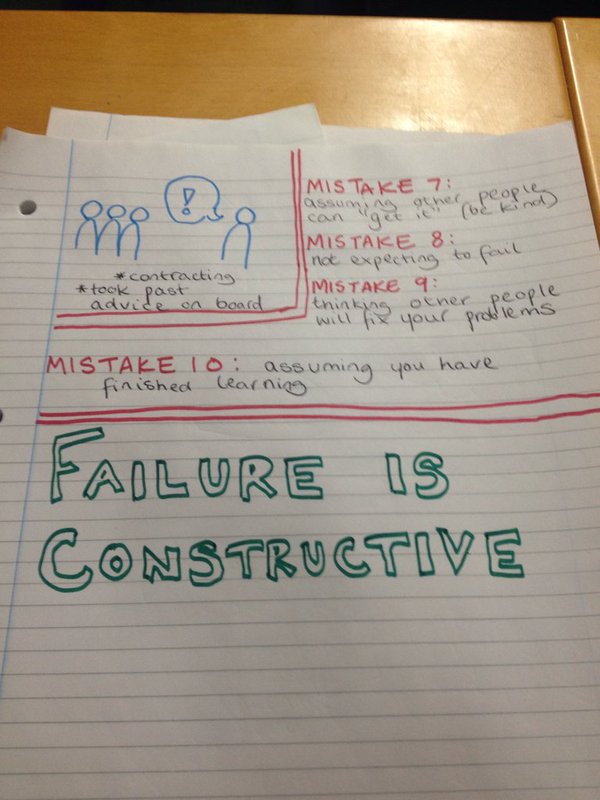 !
*contracting
*took past
advice on board
MISTAKE 7:
assuming other people
can "get it" (be kind)
MISTAKE 8:
not expecting to fail
MISTAKE 9:
thinking other people
will fix your problems
MISTAKE 10: assuming you have
finished learning
FAILURE IS
CONSTRUCTIVE